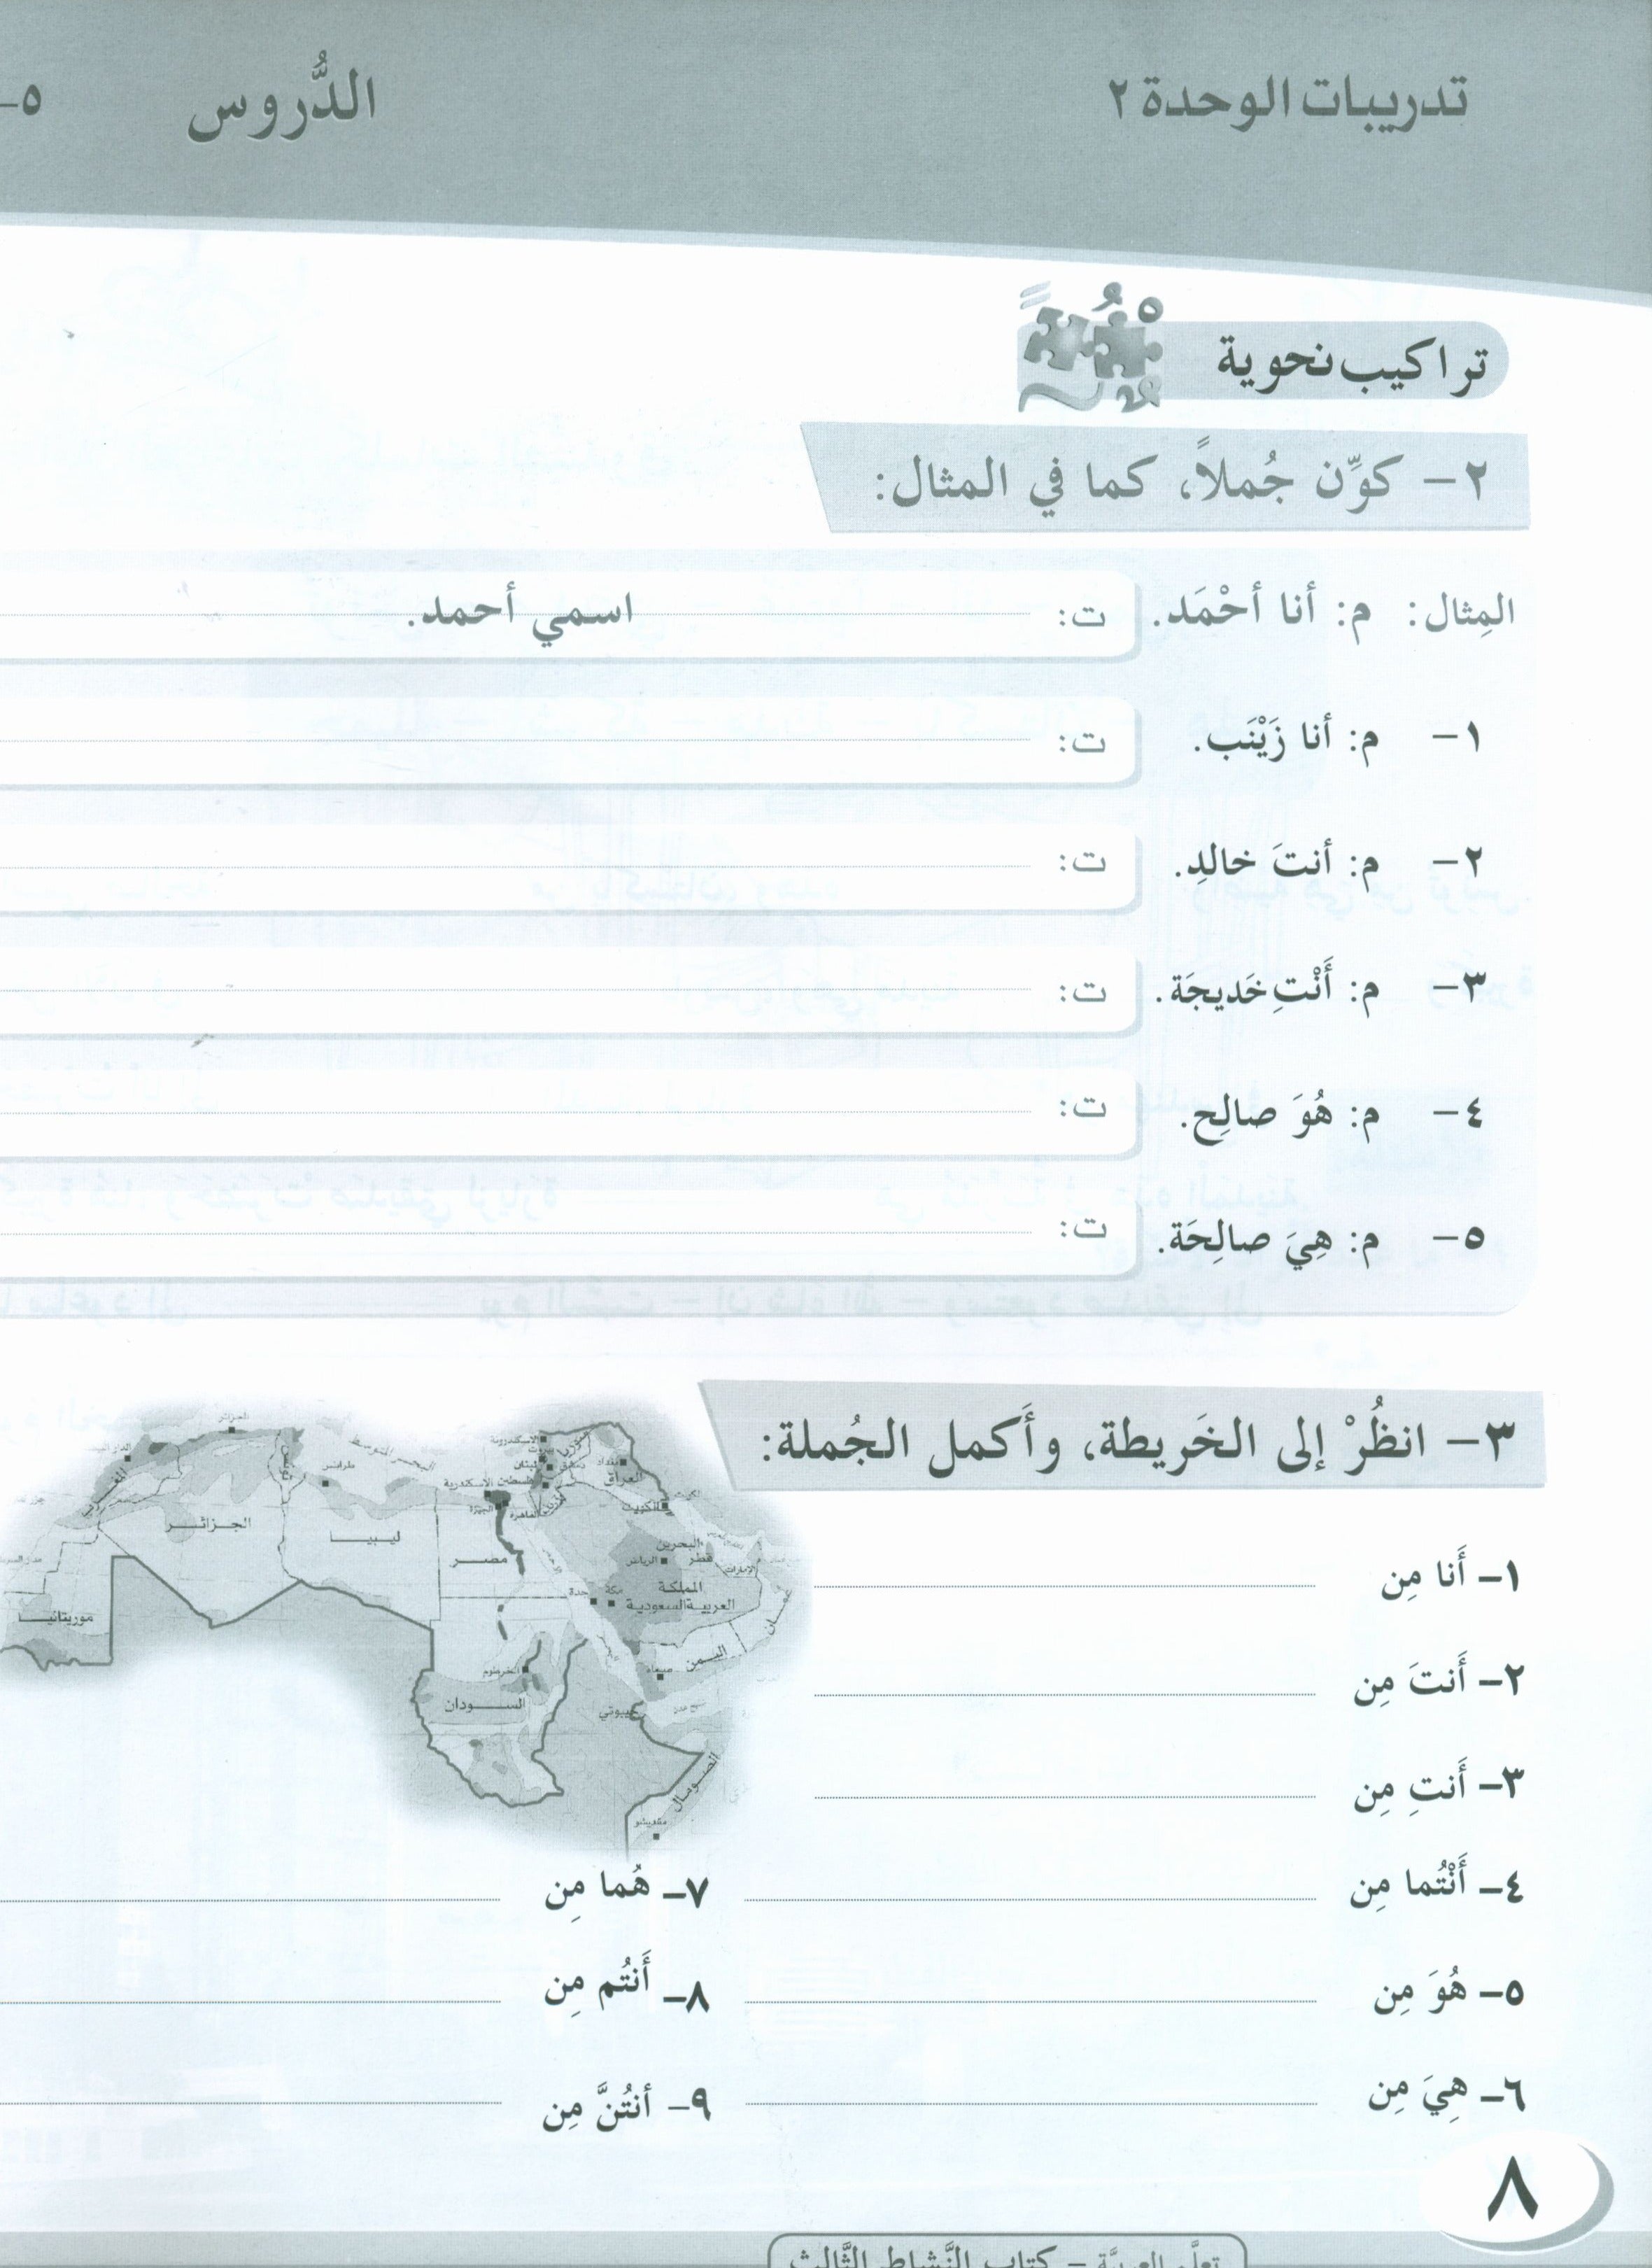 تدريبات الوحدة ٢
الدُّروس ٥-
تراكيب نحوية
٢- كوِّن جُملاً، كما في المثال:
المِثال: م: أنا أحْمَد. ت: اسمي أحمد.
١- م: أنا زَيْنَب. ت:
٢- م: أنتَ خالدِ. ت:
٣- م: أَنْتِ خَديجَة. ت:
٤- م: هُوَ صالِح. ت:
٥- م: هِيَ صالِحَة. ت:
٣- انظُرْ إلى الخَريطة، وأَكمل الجُملة:
الجزائر
المغرب
تونس
البحر المتوسط
طرابلس
الاسكندرية
بيروت
سوريا
لبنان
دمشق
بغداد
فلسطين
العراق
القاهرة
الجيزة
الكويت
الجزائر
ليبيا
مصر
البحرين
قطر
الرياض
الامارات
المملكة
العربية السعودية
مكة
جدة
عمان
موريتانيا
اليمن
صنعاء
الخرطوم
السودان
جيبوتي
الصومال
مقديشو
١- أَنا مِن
٢- أَنتَ مِن
٣- أَنتِ مِن
٤- أَنْتُما مِن
٥- هُوَ مِن
٦- هِيَ مِن
٧- هُما مِن
٨- أَنتُم مِن
٩- أنتُنَّ مِن
٨
تعلَّم العربيَّة - كتاب النَّشاط الثَّالث